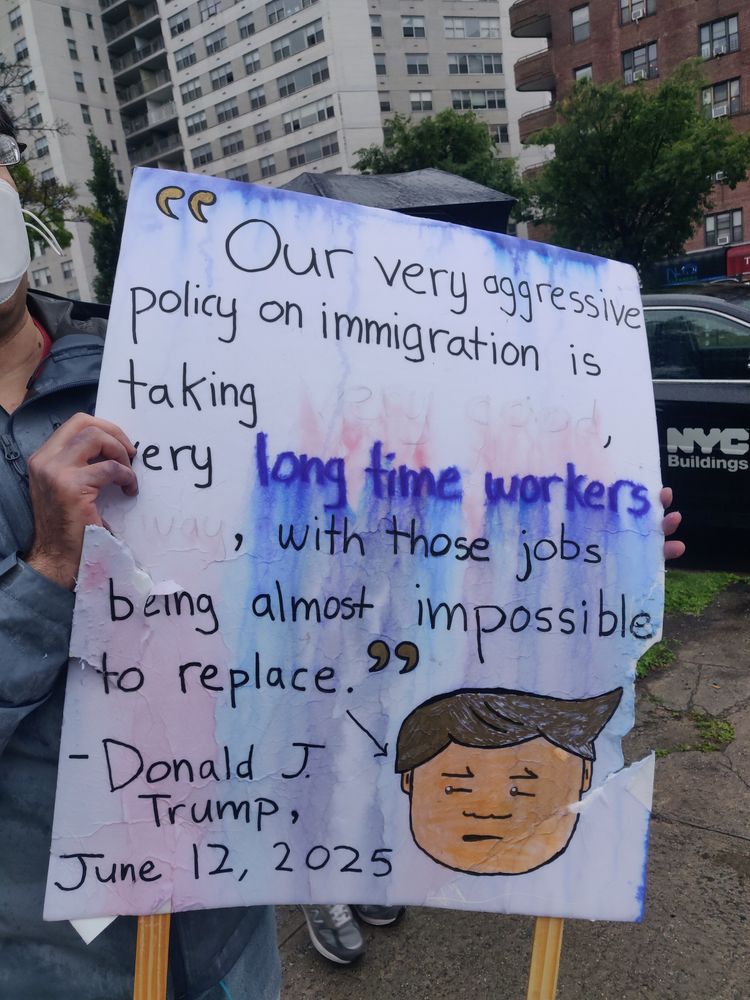 “ Our very aggressive
policy on immigration is
taking very good,
very long time workers
away, with those jobs
being almost impossible
to replace.”
- Donald J.
Trump,
June 12, 2025
NYC
Buildings